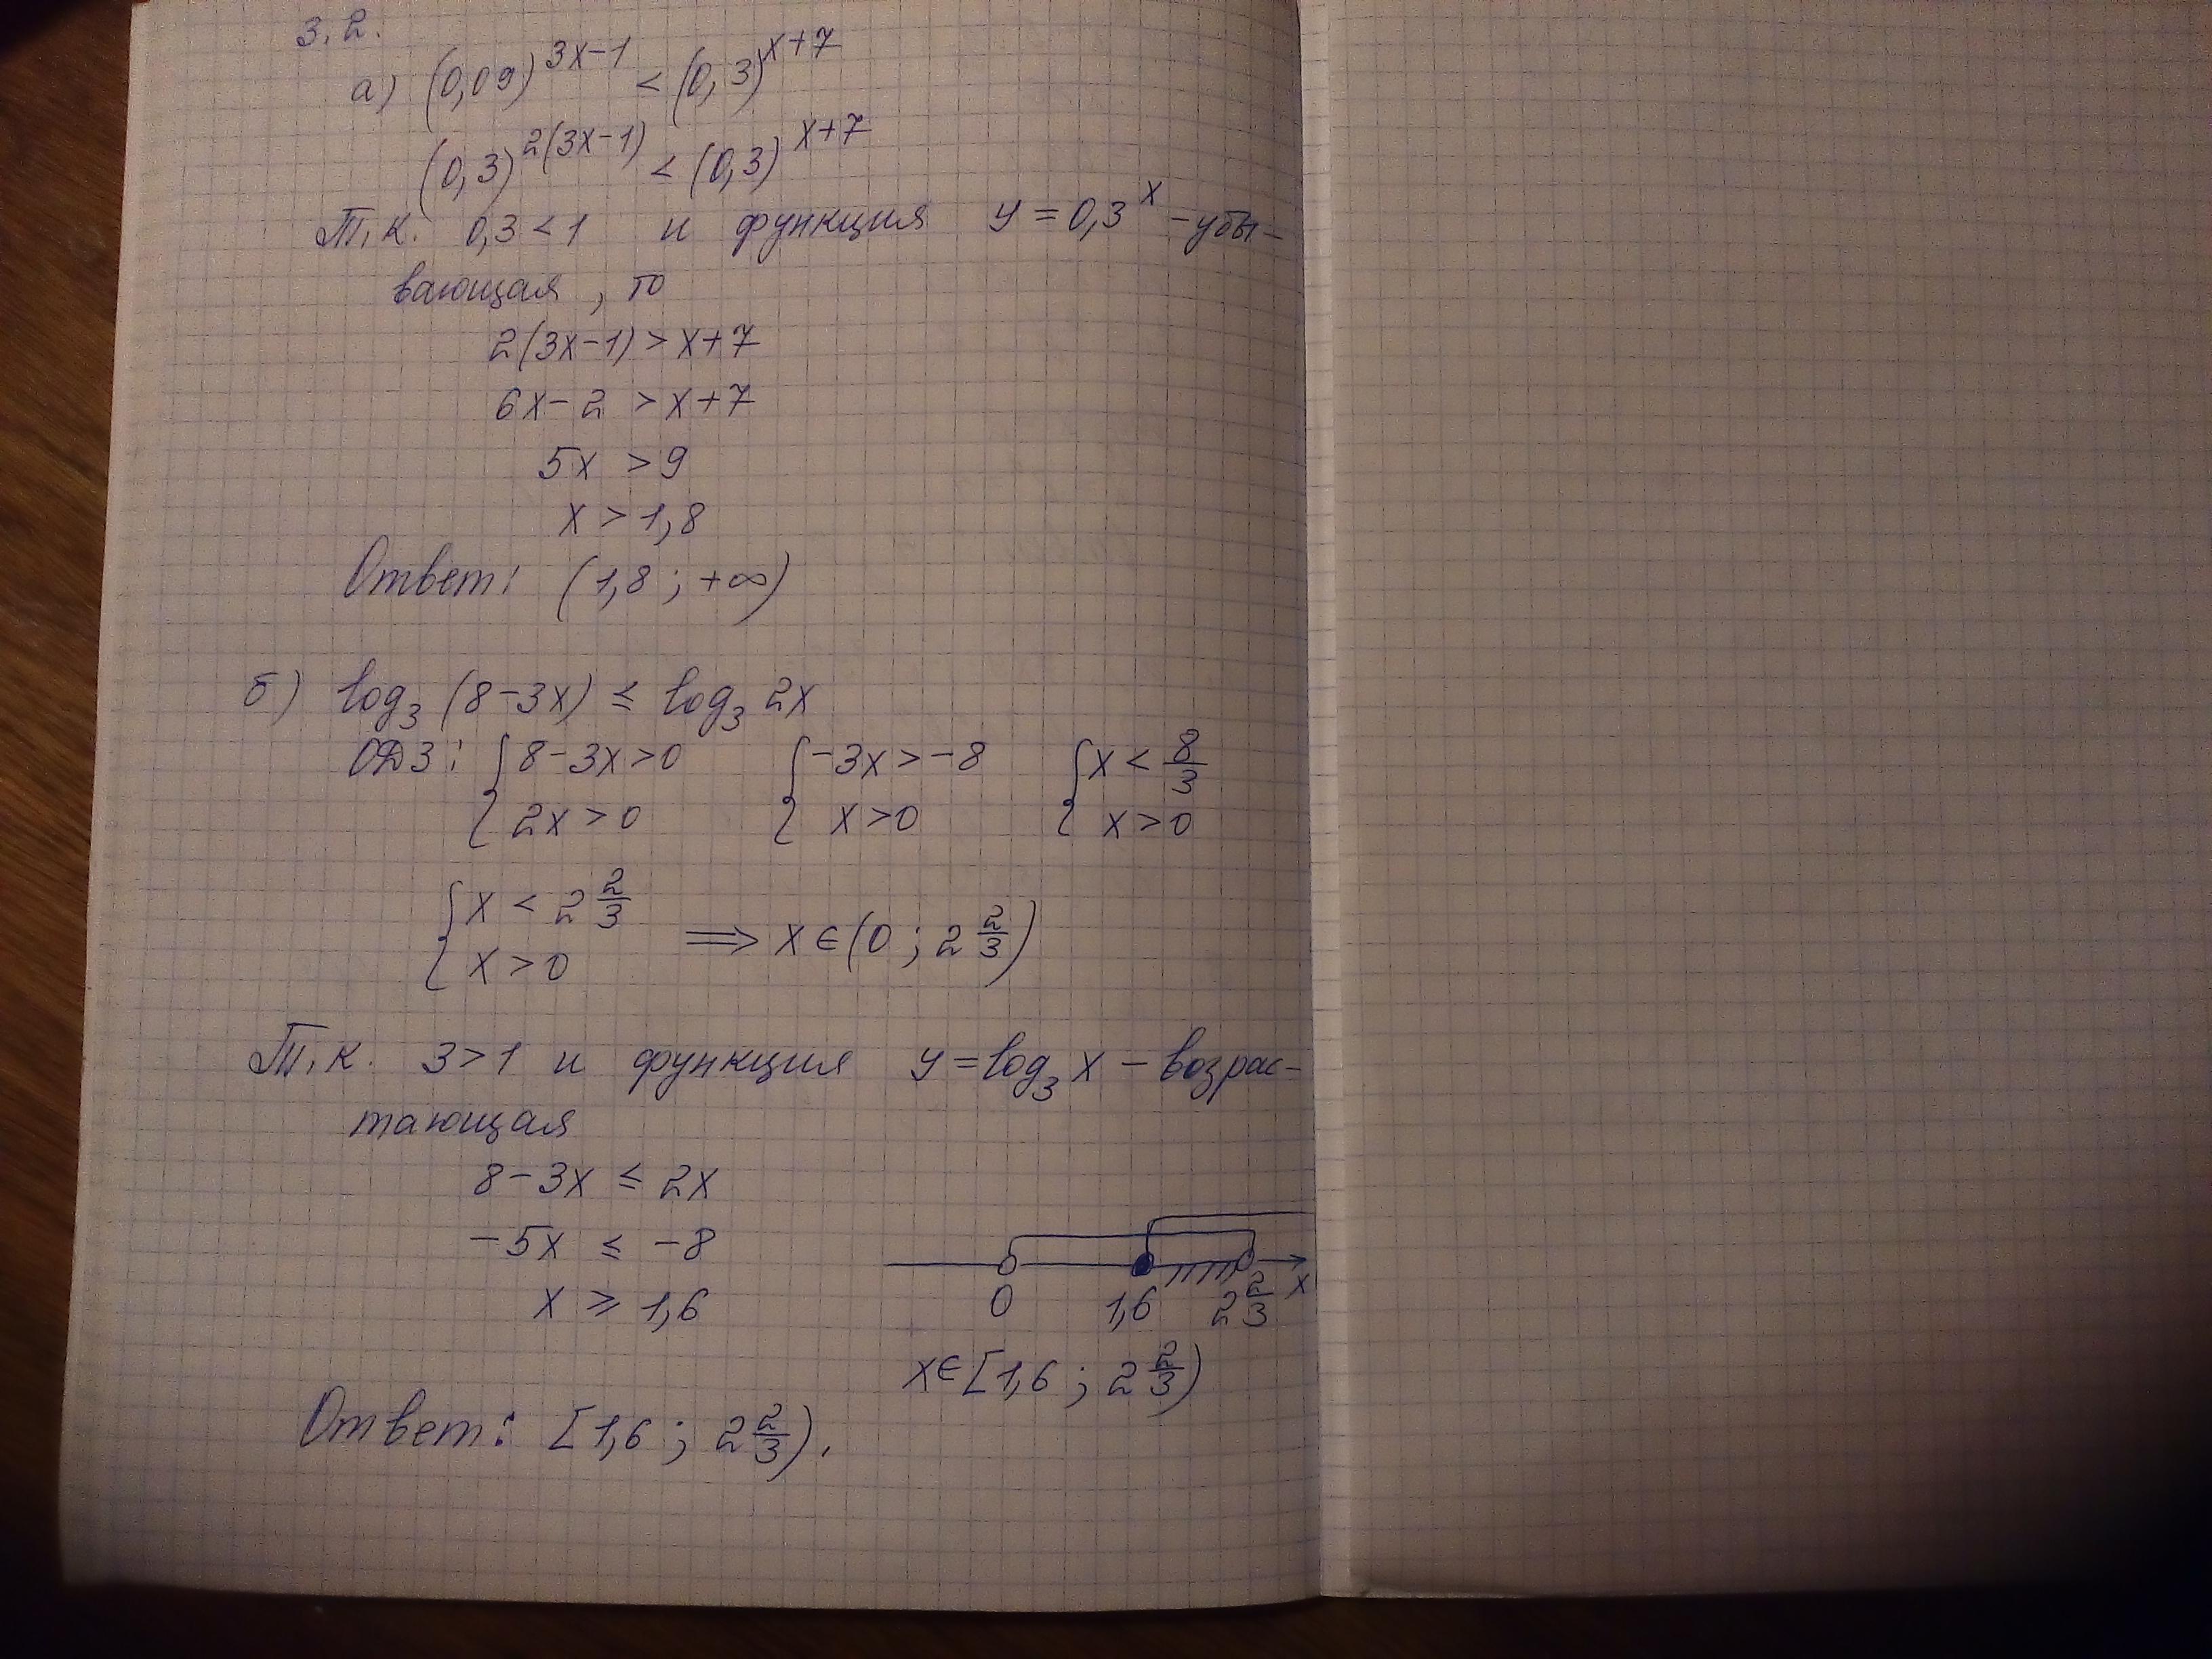 3.2.
а) (0,09)^{3x-1} < (0,3)^{x+7}
(0,3)^{2(3x-1)} < (0,3)^{x+7}
Т.к. 0,3<1 и функция y = 0,3^x - убы-
вающая, то
2(3x-1) > x+7
6x-2 > x+7
5x > 9
x > 1,8
Ответ: (1,8 ; +∞)
б) log₃ (8-3x) ≤ log₃ 2x
ОДЗ: { 8-3x>0 { -3x>-8 { x < 8/3
2x>0 x>0 x>0
{ x < 2 2/3
x>0 ⟹ x ∈ (0 ; 2 2/3)
Т.к. 3>1 и функция y = log₃ x - возрас-
тающая
8-3x ≤ 2x
-5x ≤ -8
x ≥ 1,6
0 1,6 2 2/3 x
x ∈ [1,6 ; 2 2/3)
Ответ: [1,6 ; 2 2/3).